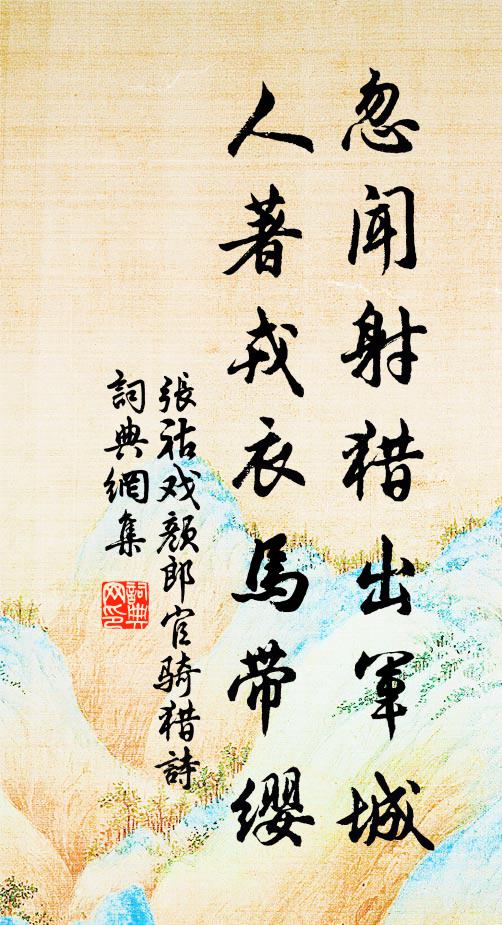 忽闻射猎出军城
人著戎衣马带缨
張祜戏顏郎官骑猎詩
詞典網集
詞典网印